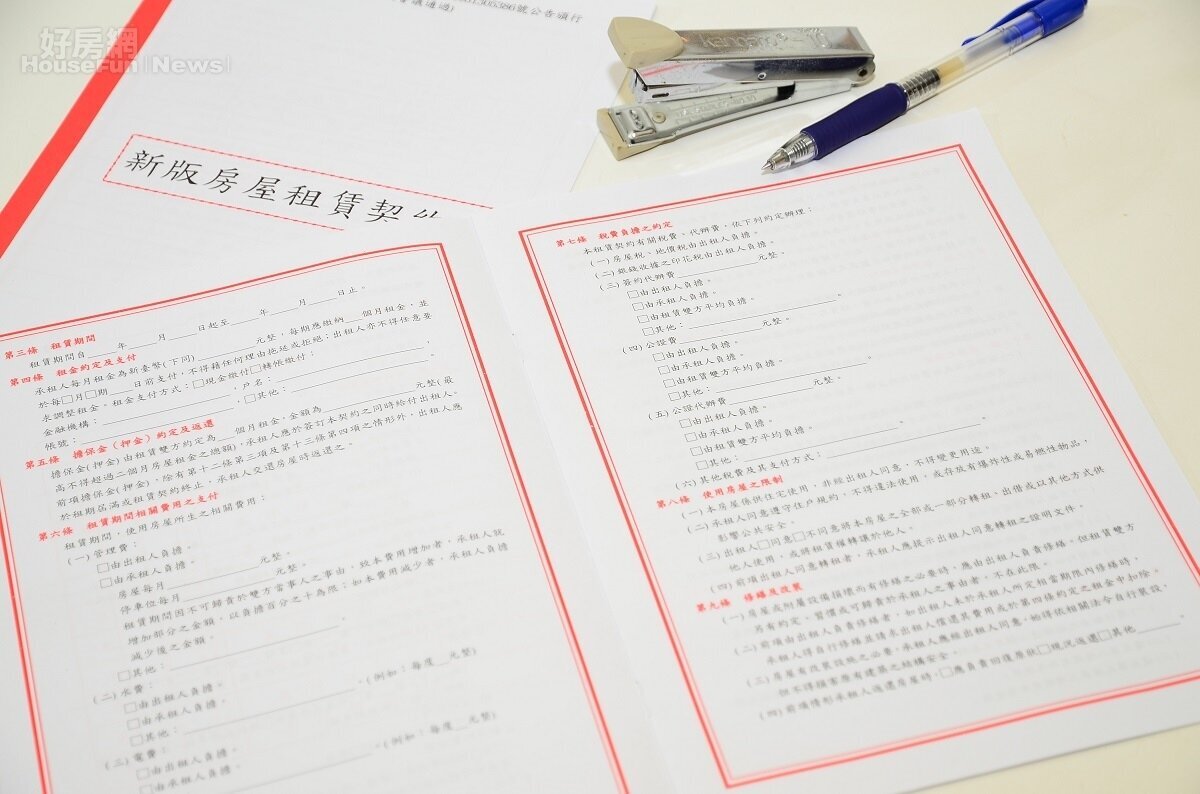 好房網
HouseFun News
305386號公告頒行
會議通過)
新版房屋租賃契
第三條 租賃期間
租賃期間自 年 月 日起至 年 月 日止。
第四條 租金約定及支付
承租人每月租金為新臺幣(下同) 元整,每期應繳納 個月租金,並
於每□月□期 日前支付,不得藉任何理由拖延或拒絕;出租人亦不得任意要
求調整租金。租金支付方式:□現金繳付□轉帳繳付:
金融機構: ,戶名: ,
帳號: 。□其他: 。
第五條 擔保金(押金)約定及返還
擔保金(押金)由租賃雙方約定為 個月租金,金額為 元整(最
高不得超過二個月房屋租金之總額),承租人應於簽訂本契約之同時給付出租人。
前項擔保金(押金),除有第十二條第三項及第十三條第四項之情形外,出租人應
於租期屆滿或租賃契約終止,承租人交還房屋時返還之。
第六條 租賃期間相關費用之支付
租賃期間,使用房屋所生之相關費用:
(一)管理費:
□由出租人負擔。
□由承租人負擔。
房屋每月 元整。
停車位每月 元整。
租賃期間因不可歸責於雙方當事人之事由,致本費用增加者,承租人就
增加部分之金額,以負擔百分之十為限;如本費用減少者,承租人負擔
減少後之金額。
□其他: 。
(二)水費:
□由出租人負擔。
□由承租人負擔。
□其他: 。(例如:每度 元整)
(三)電費:
□由出租人負擔。
□由承租人負擔。
。(例如:每度 元整)
第七條 稅費負擔之約定
本租賃契約有關稅費、代辦費,依下列約定辦理:
(一)房屋稅、地價稅由出租人負擔。
(二)銀錢收據之印花稅由出租人負擔。
(三)簽約代辦費 元整。
□由出租人負擔。
□由承租人負擔。
□由租賃雙方平均負擔。
□其他: 。
(四)公證費 元整。
□由出租人負擔。
□由承租人負擔。
□由租賃雙方平均負擔。
□其他: 。
(五)公證代辦費 元整。
□由出租人負擔。
□由承租人負擔。
□由租賃雙方平均負擔。
□其他: 。
(六)其他稅費及其支付方式: 。
第八條 使用房屋之限制
(一)本房屋係供住宅使用,非經出租人同意,不得變更用途。
(二)承租人同意遵守住戶規約,不得違法使用,或存放有爆炸性或易燃性物品,
影響公共安全。
(三)出租人□同意□不同意將本房屋之全部或一部分轉租、出借或以其他方式供
他人使用,或將租賃權轉讓於他人。
(四)前項出租人同意轉租者,承租人應提示出租人同意轉租之證明文件。
第九條 修繕及改裝
(一)房屋或附屬設備損壞而有修繕之必要時,應由出租人負責修繕。但租賃雙方
另有約定、習慣或可歸責於承租人之事由者,不在此限。
(二)前項由出租人負責修繕者,如出租人未於承租人所定相當期限內修繕時,
承租人得自行修繕並請求出租人償還其費用或於第四條約定之租金中扣除。
(三)房屋有改裝設施之必要,承租人應經出租人同意,始得依相關法令自行裝設,
但不得損害原有建築之結構安全。
(四)前項情形承租人返還房屋時,□應負責回復原狀□現況返還□其他 。